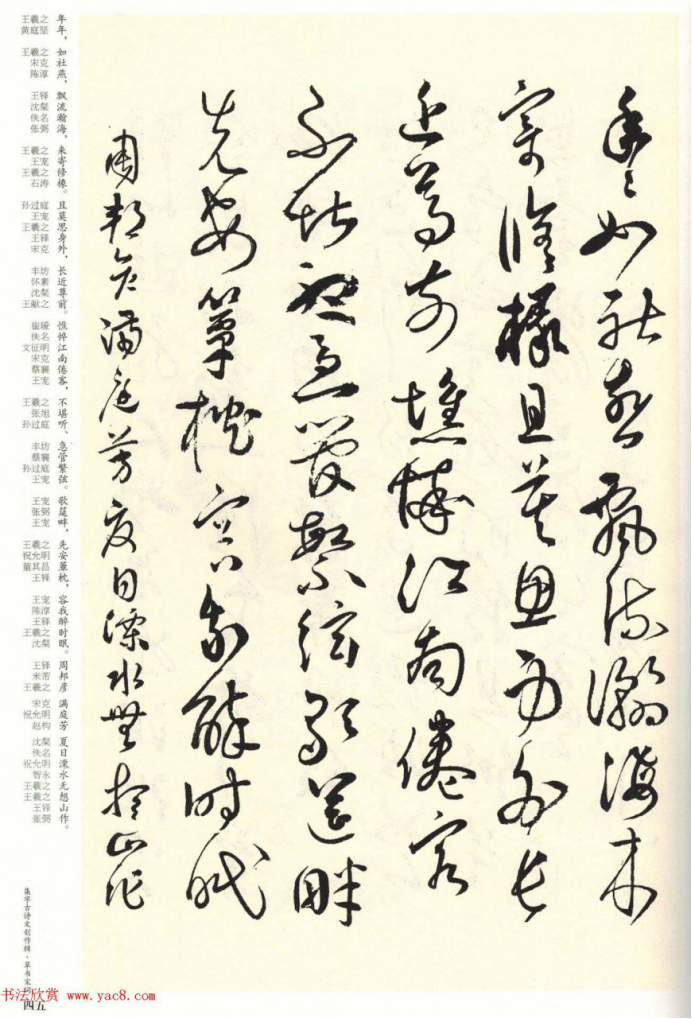 年々如社燕飘流瀚海来
寄修椽且莫思身外长
近尊前憔悴江南倦客
不堪听急管繁弦歌筵畔
先安簟枕容我醉时眠
周邦彦满庭芳夏日溧水无想山作
年年，如社燕，飘流瀚海，来寄修椽。且莫思身外，长近尊前。憔悴江南倦客，不堪听，急管繁弦。歌筵畔，先安簟枕，容我醉时眠。 周邦彦 满庭芳 夏日溧水无想山作。
王羲之
黄庭坚
王羲之
宋克
陈淳
王铎
沈粲
佚名
张弼
王羲之
王宠
王羲之
石涛
孙过庭
王宠
王羲之
王铎
宋克
丰坊
怀素
沈粲
王献之
崔瑗
佚名
文征明
宋克
蔡襄
王宠
王羲之
张旭
孙过庭
丰坊
蔡襄
孙过庭
王宠
王宠
张弼
王宠
王羲之
祝允明
董其昌
王铎
王宠
陈淳
王铎
王羲之
沈粲
王铎
米芾
王羲之
宋克
祝允明
赵构
沈粲
佚名
祝允明
智永
王羲之
王羲之
王铎
张弼
集字古诗文创作辑·草书宋词
四五
书法欣赏 www.yac8.com